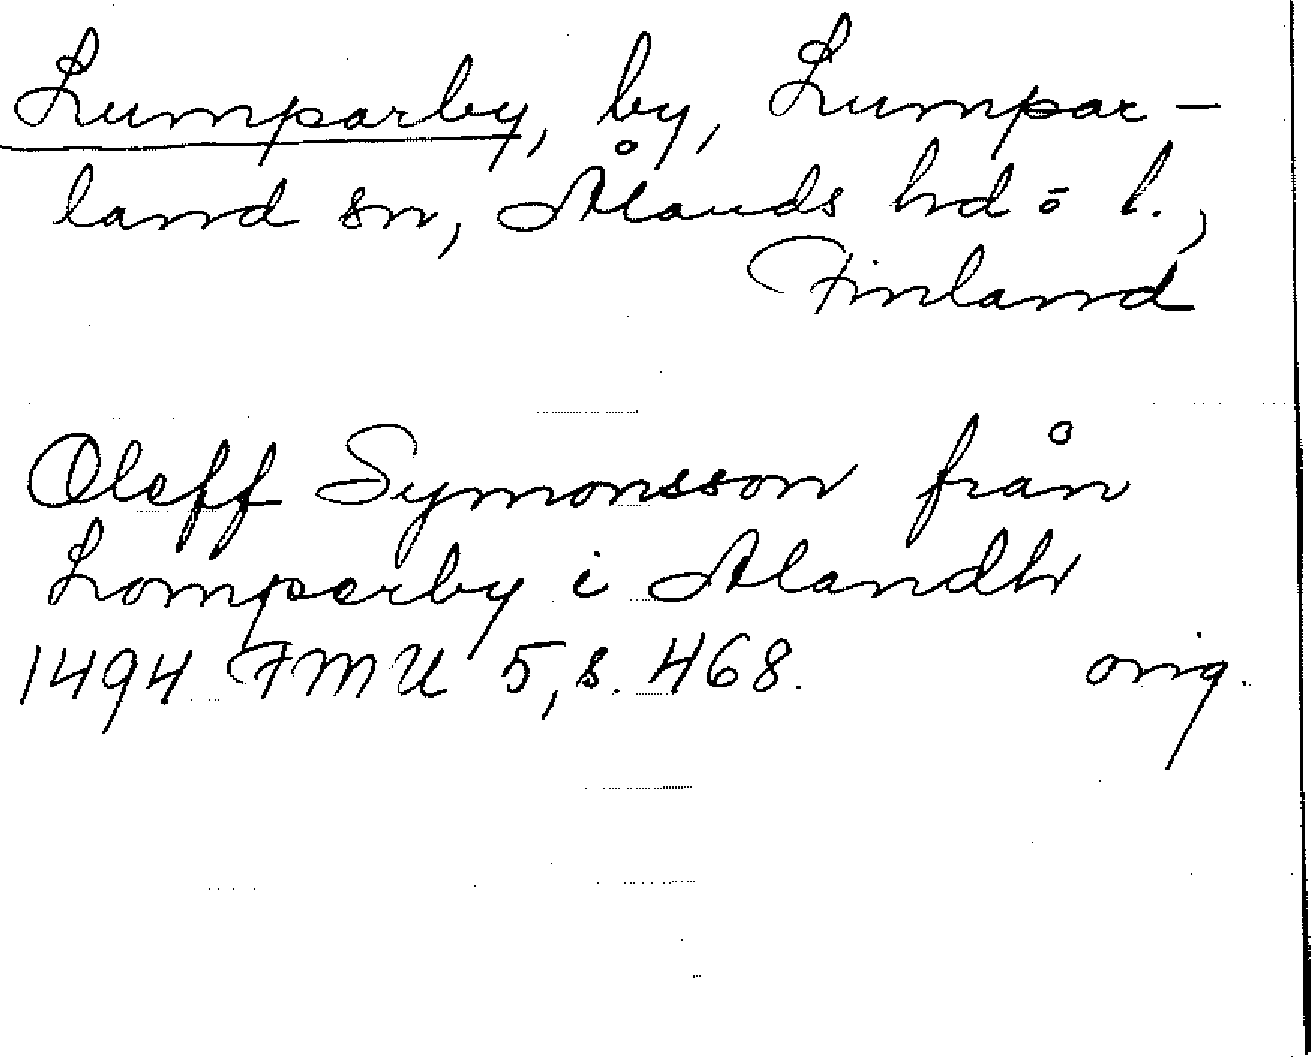 Lumparby, by, Lumpar-
land sn, Ålands hd o l.,
Finland
Oleff Symonsson från
Lomparby i Alandh
1494 FMU 5, s. 468. orig.